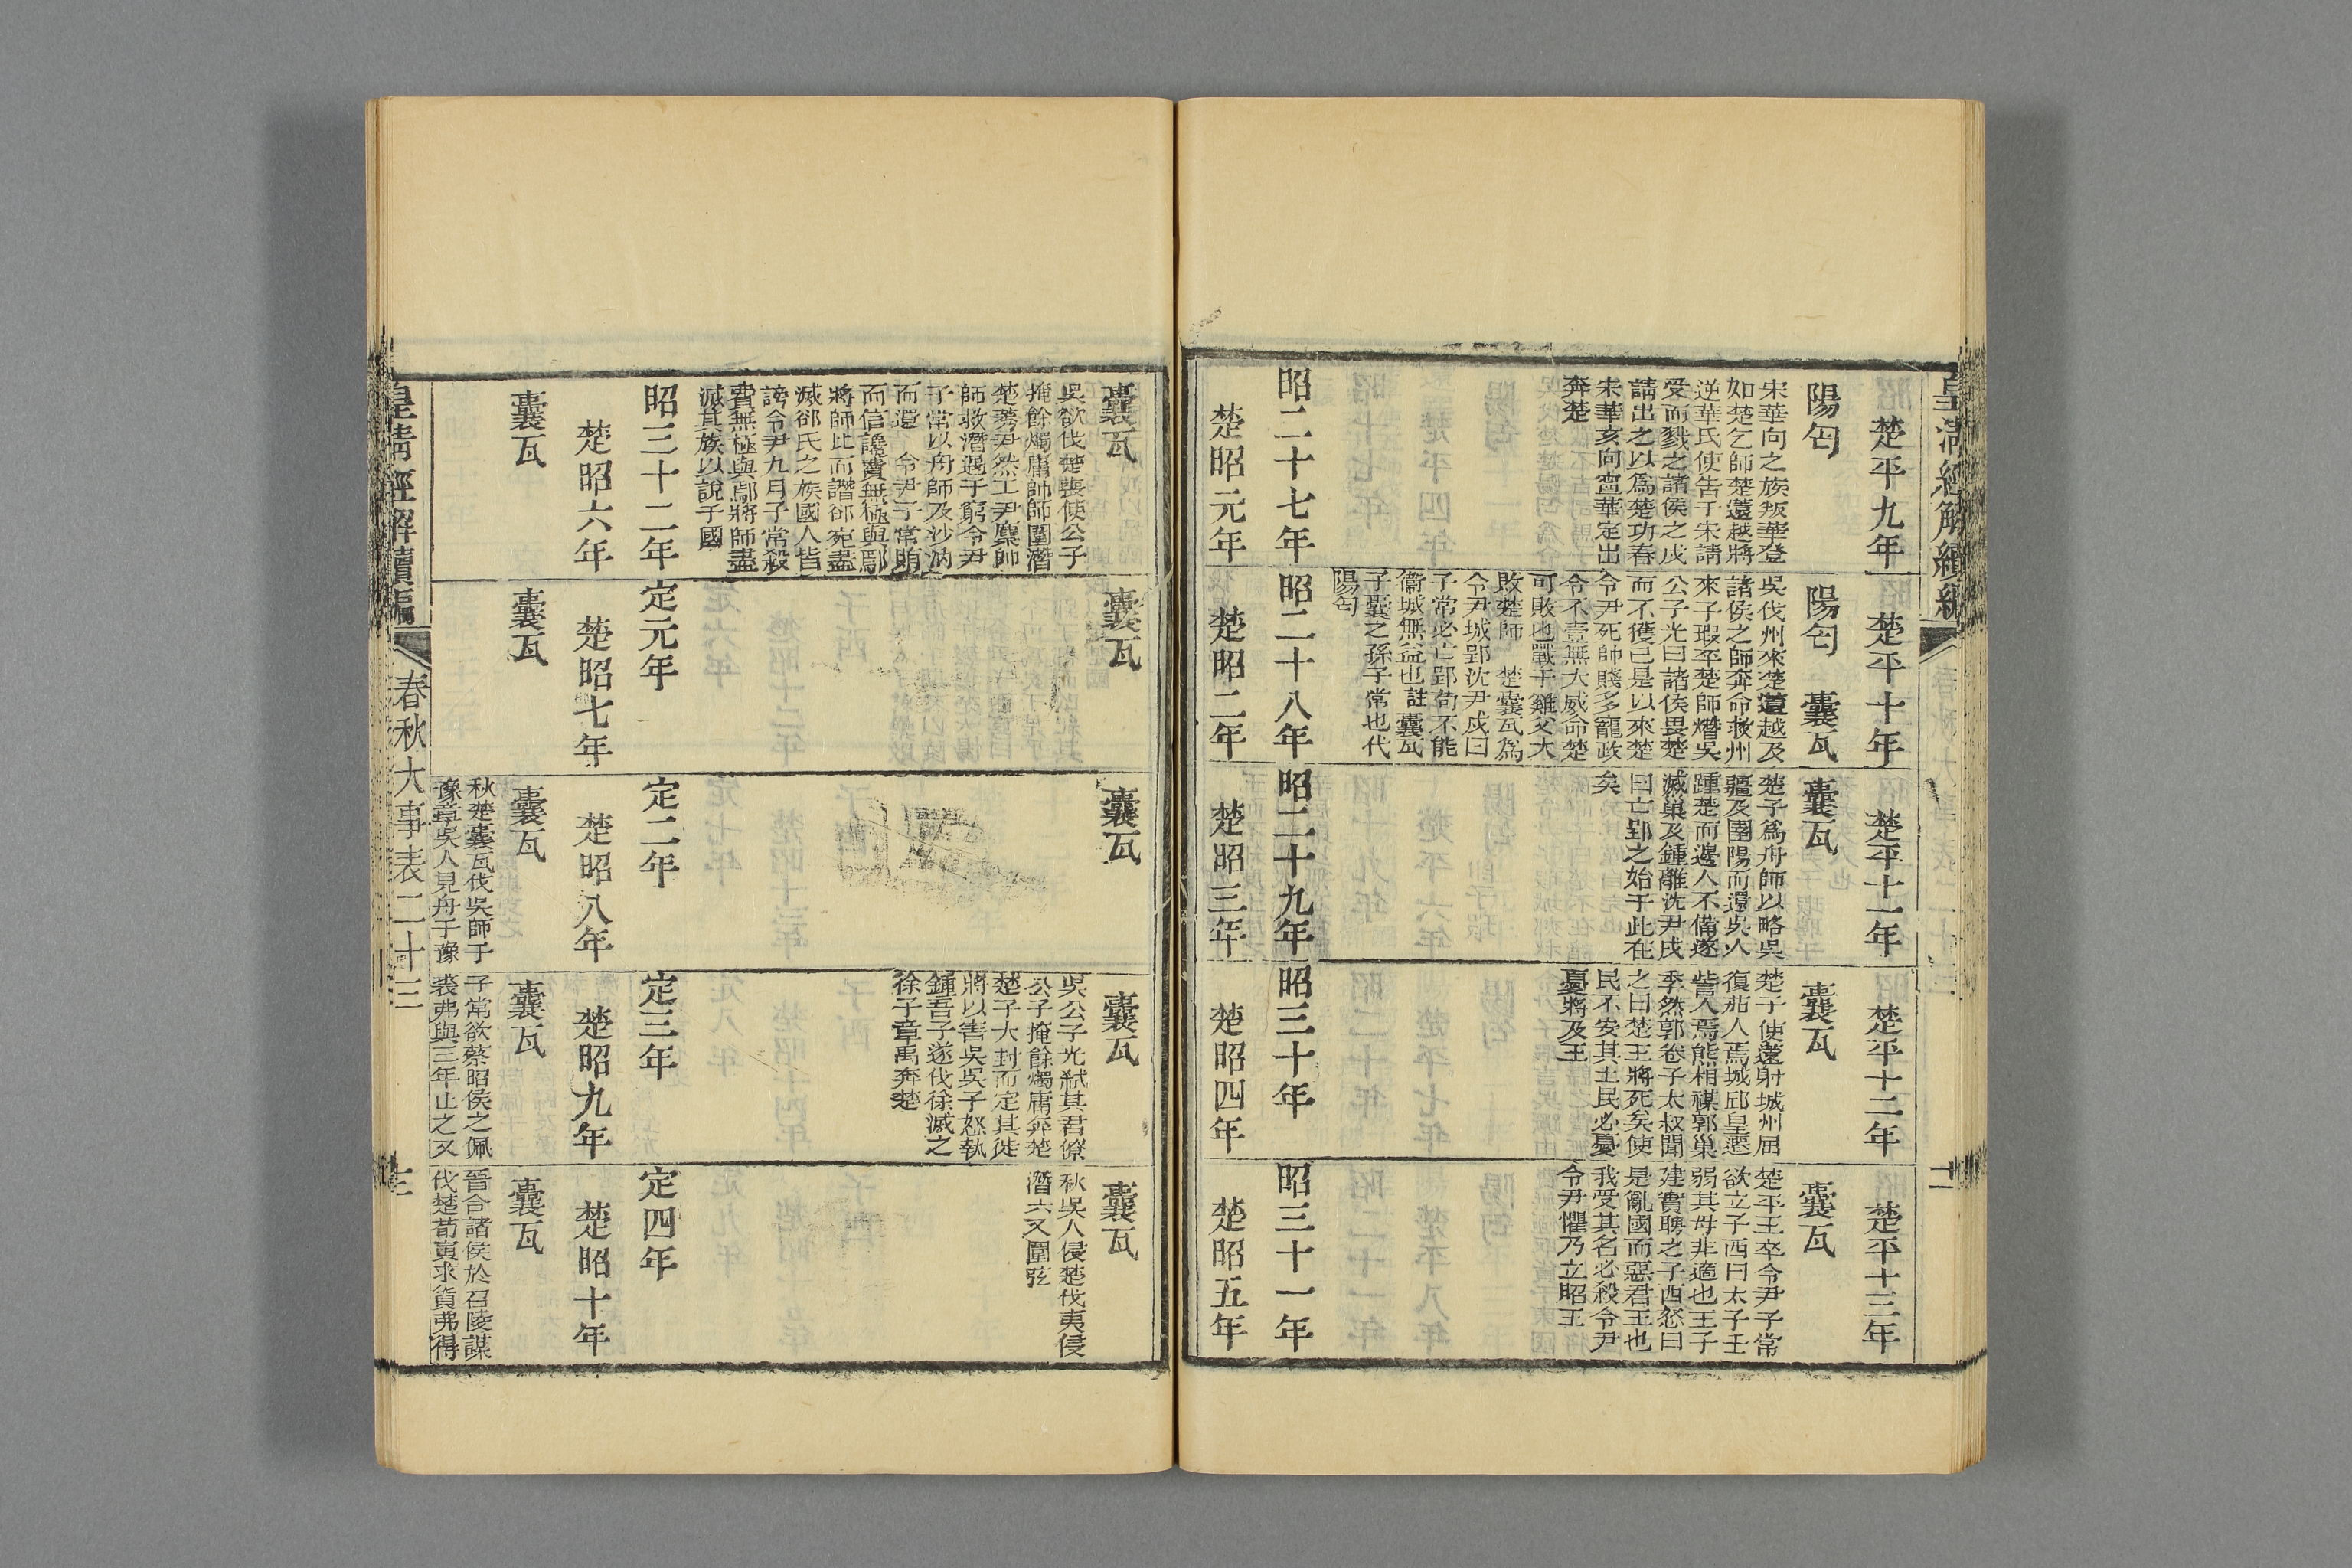 皇清經解續編
楚平九年
楚平十年
楚平十一年
楚平十二年
楚平十三年
陽匄
陽匄 囊瓦
囊瓦
囊瓦
囊瓦
宋華向之族叛華登
如楚乞師楚薳越將
逆華氏使告于宋請
受而戮之諸侯之戍
請出之以爲楚功春
宋華亥向寗華定出
奔楚
吳伐州來楚薳越及
諸侯之師奔命救州
來子瑕卒楚師熸吳
公子光曰諸侯畏楚
而不獲已是以來楚
令尹死師賤多寵政
令不壹無大威命楚
可敗也戰于雞父大
敗楚師 楚囊瓦爲
令尹城郢沈尹戌曰
子常必亡郢苟不能
衞城無益也註囊瓦
子囊之孫子常也代
陽匄
楚子爲舟師以略吳
疆及圉陽而還吳人
踵楚而邊人不備遂
滅巢及鍾離沈尹戌
曰亡郢之始于此在
矣
楚子使薳射城州屈
復茄人焉城邱皇遷
訾人焉熊相禖郭巢
季然郭卷子太叔聞
之曰楚王將死矣使
民不安其土民必憂
憂將及王
楚平王卒令尹子常
欲立子西曰太子壬
弱其母非適也王子
建實聘之子西怒曰
是亂國而惡君王也
我受其名必殺令尹
令尹懼乃立昭王
昭二十七年
昭二十八年
昭二十九年
昭三十年
昭三十一年
楚昭元年
楚昭二年
楚昭三年
楚昭四年
楚昭五年
囊瓦
囊瓦
囊瓦
囊瓦
囊瓦
吳欲伐楚喪使公子
掩餘燭庸帥師圍潛
楚莠尹然工尹麇帥
師救潛遇于窮令尹
子常以舟師及沙汭
而還 令尹子常賄
而信讒費無極與鄢
將師比而譖郤宛盡
滅郤氏之族國人皆
謗令尹九月子常殺
費無極與鄢將師盡
滅其族以說于國
吳公子光弑其君僚
公子掩餘燭庸奔楚
楚子大封而定其徙
將以害吳吳子怒執
鍾吾子遂伐徐滅之
徐子章禹奔楚
秋吳人侵楚伐夷侵
潛六又圍弦
昭三十二年
定元年
定二年
定三年
定四年
楚昭六年
楚昭七年
楚昭八年
楚昭九年
楚昭十年
囊瓦
囊瓦
囊瓦
囊瓦
囊瓦
秋楚囊瓦伐吳師于
豫章吳人見舟于豫
子常欲蔡昭侯之佩
裘弗與三年止之又
晉合諸侯於召陵謀
伐楚荀寅求貨弗得
皇清經解續編
春秋大事表二十三